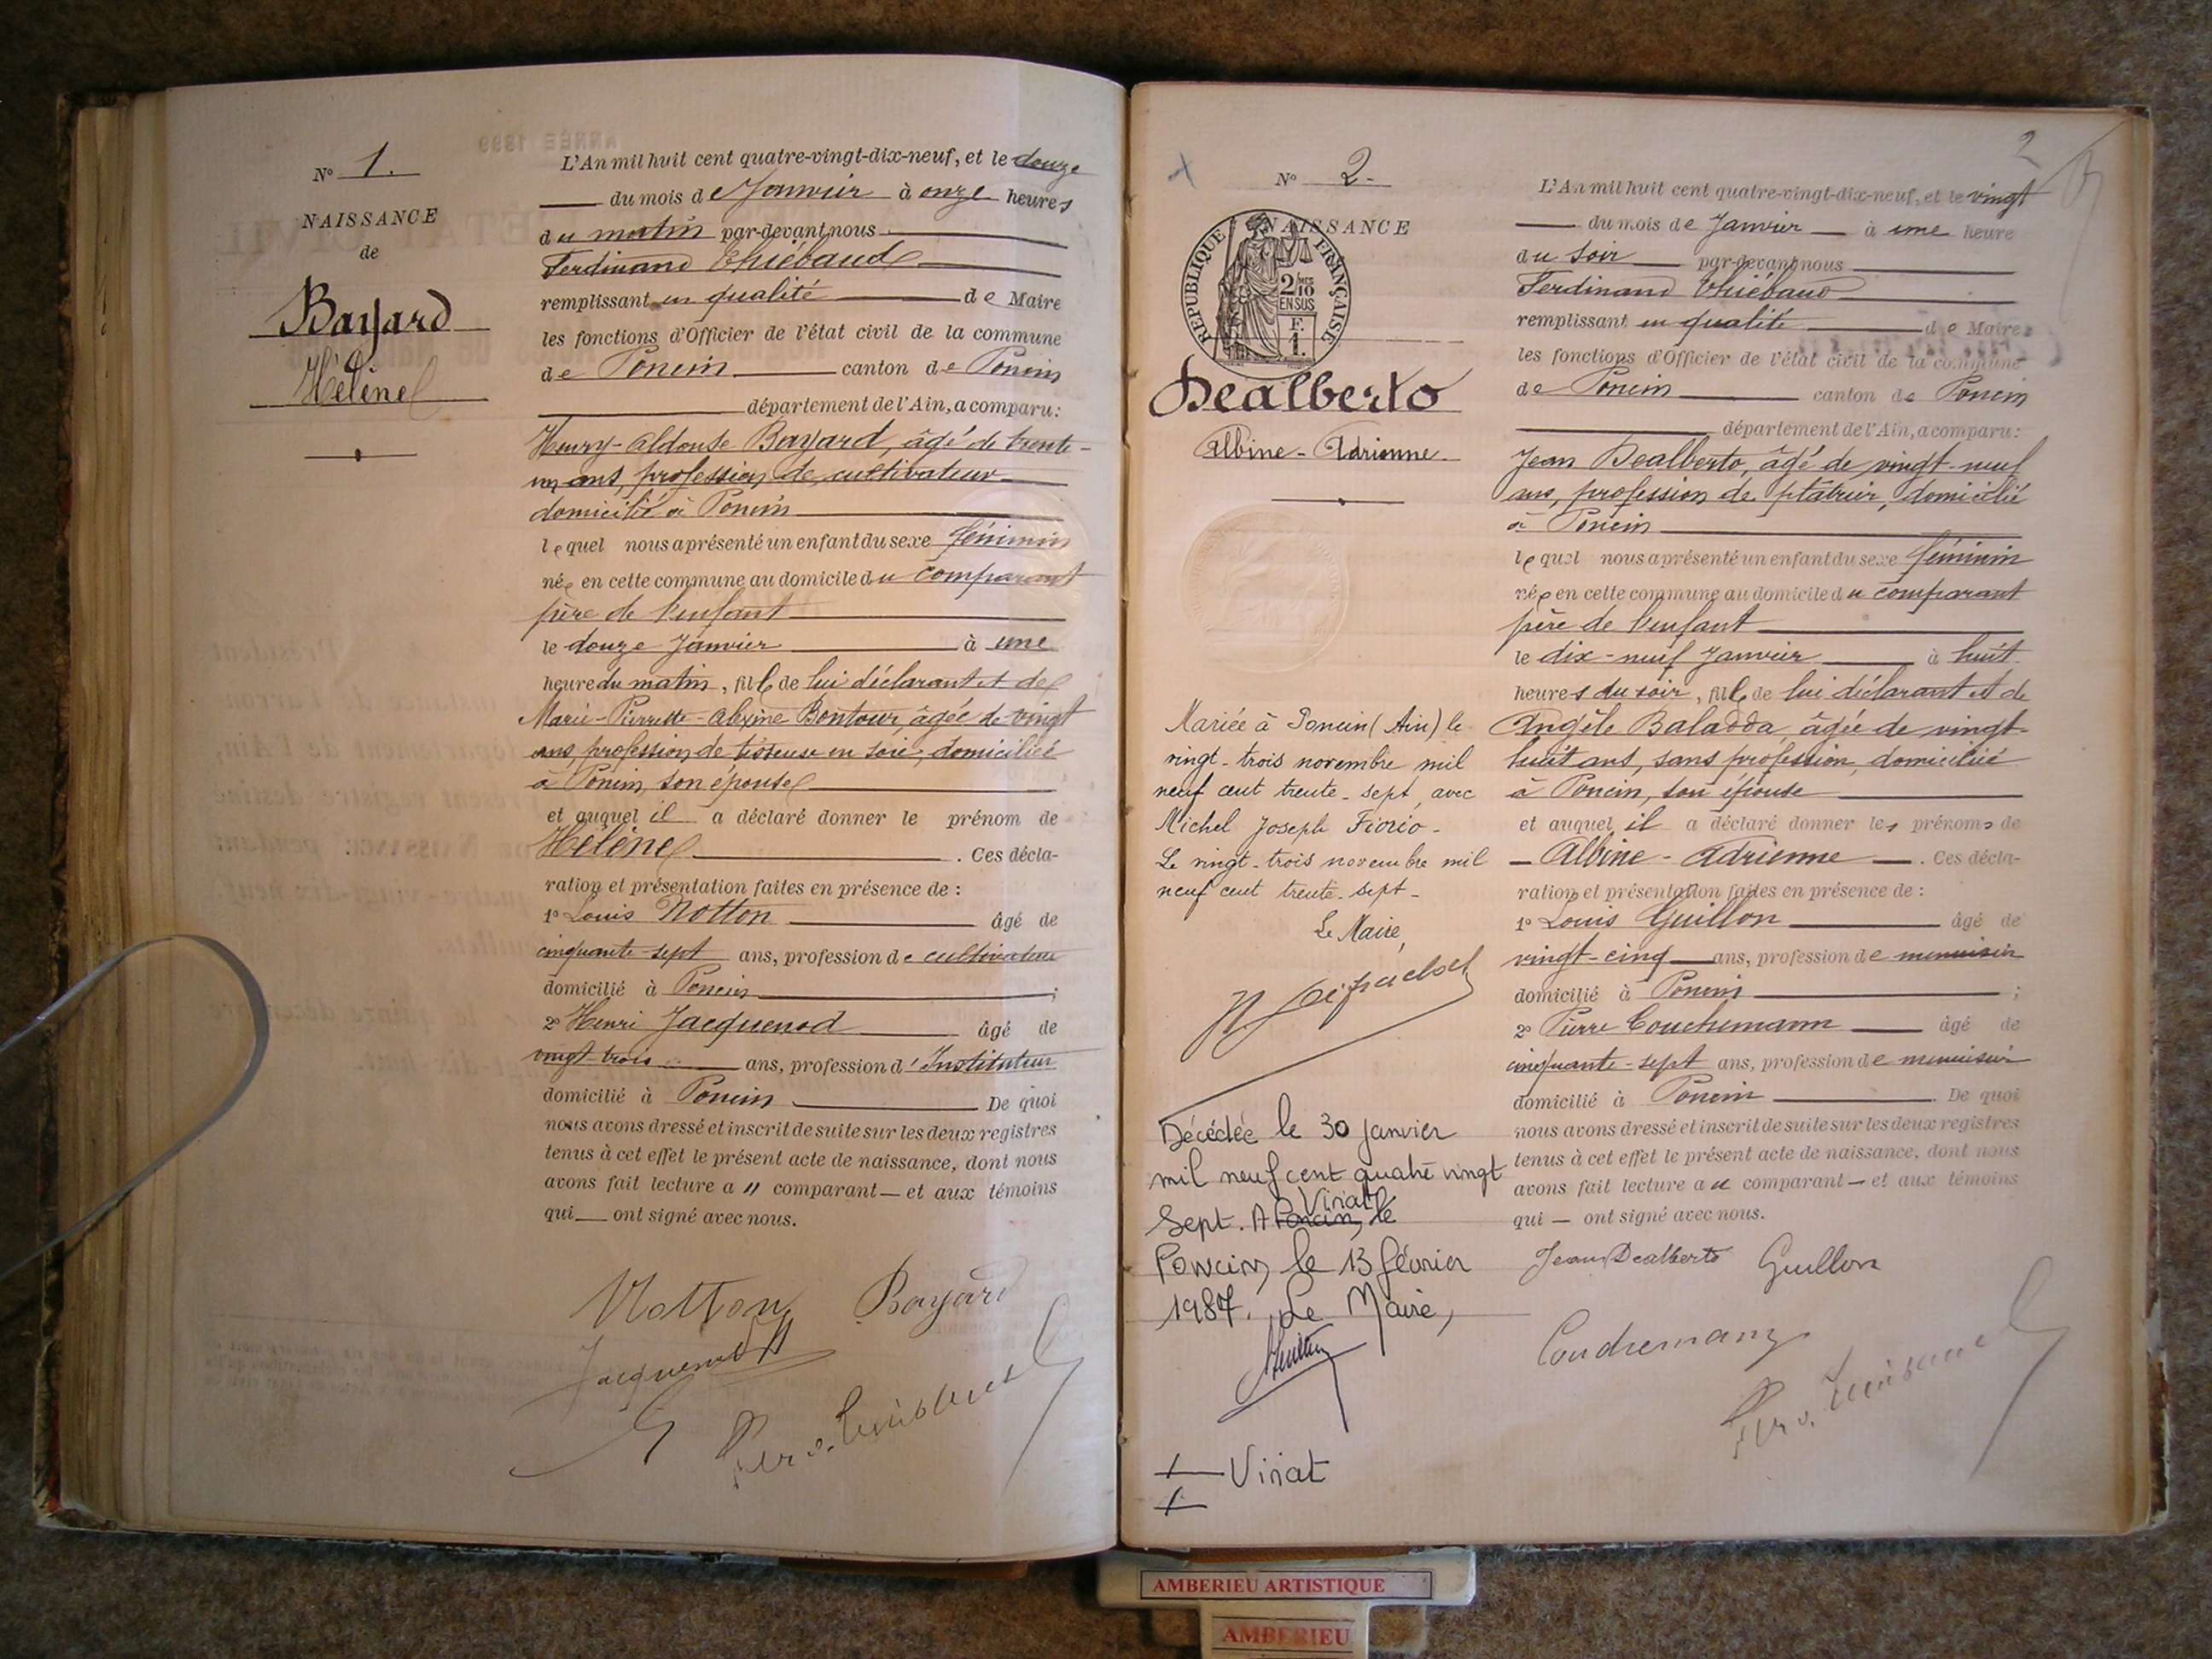 N° 1.
NAISSANCE
de
Bayard
Hélène
L'An mil huit cent quatre-vingt-dix-neuf, et le douze
du mois de Janvier à onze heures
du matin par-devant nous
Ferdinand Thiébaud
remplissant en qualité de Maire
les fonctions d'Officier de l'état civil de la commune
de Poncin canton de Poncin
département de l'Ain, a comparu:
Henry-Aldonse Bayard, âgé de trente-
un ans, profession de cultivateur
domicilié à Poncin
lequel nous a présenté un enfant du sexe féminin
née en cette commune au domicile du comparant
père de l'enfant
le douze Janvier à une
heure du matin, fille de lui déclarant et de
Marie-Pierrette-Alexine Bontour, âgée de vingt
ans, profession de tisseuse en soie, domiciliée
à Poncin, son épouse
et auquel il a déclaré donner le prénom de
Hélène. Ces décla-
ration et présentation faites en présence de :
1° Louis Notton âgé de
cinquante-sept ans, profession de cultivateur
domicilié à Poncin ;
2° Henri Jacquenod âgé de
vingt-trois ans, profession d'Instituteur
domicilié à Poncin De quoi
nous avons dressé et inscrit de suite sur les deux registres
tenus à cet effet le présent acte de naissance, dont nous
avons fait lecture au comparant et aux témoins
qui ont signé avec nous.
Notton Bayard
Jacquenod
2
N° 2-
NAISSANCE
RÉPUBLIQUE FRANÇAISE
2/10
EN SUS
F.
1.
Dealberto
Albine-Adrienne
L'An mil huit cent quatre-vingt-dix-neuf, et le vingt
du mois de Janvier à une heure
du soir par-devant nous
Ferdinand Thiébaud
remplissant en qualité de Maire
les fonctions d'Officier de l'état civil de la commune
de Poncin canton de Poncin
département de l'Ain, a comparu:
Jean Dealberto, âgé de vingt-neuf
ans, profession de plâtrier, domicilié
à Poncin
lequel nous a présenté un enfant du sexe féminin
née en cette commune au domicile du comparant
père de l'enfant
le dix-neuf Janvier à huit
heures du soir, fille de lui déclarant et de
Angèle Baladda, âgée de vingt-
huit ans, sans profession, domiciliée
à Poncin, son épouse
et auquel il a déclaré donner les prénoms de
Albine-Adrienne. Ces décla-
ration et présentation faites en présence de :
1° Louis Guillon âgé de
vingt-cinq ans, profession de menuisier
domicilié à Poncin ;
2° Pierre Couchemann âgé de
cinquante-sept ans, profession de menuisier
domicilié à Poncin. De quoi
nous avons dressé et inscrit de suite sur les deux registres
tenus à cet effet le présent acte de naissance, dont nous
avons fait lecture au comparant et aux témoins
qui ont signé avec nous.
Jean Dealberto Guillon
Mariée à Poncin (Ain) le
vingt-trois novembre mil
neuf cent trente-sept, avec
Michel Joseph Fiorio-
Le vingt-trois novembre mil
neuf cent trente-sept-
Le Maire,
Décédée le 30 janvier
mil neuf cent quatre vingt
Viriat
Sept. A Poncin, le
Poncin, le 13 février
1987. Le Maire,
Viriat
AMBERIEU ARTISTIQUE
AMBERIEU